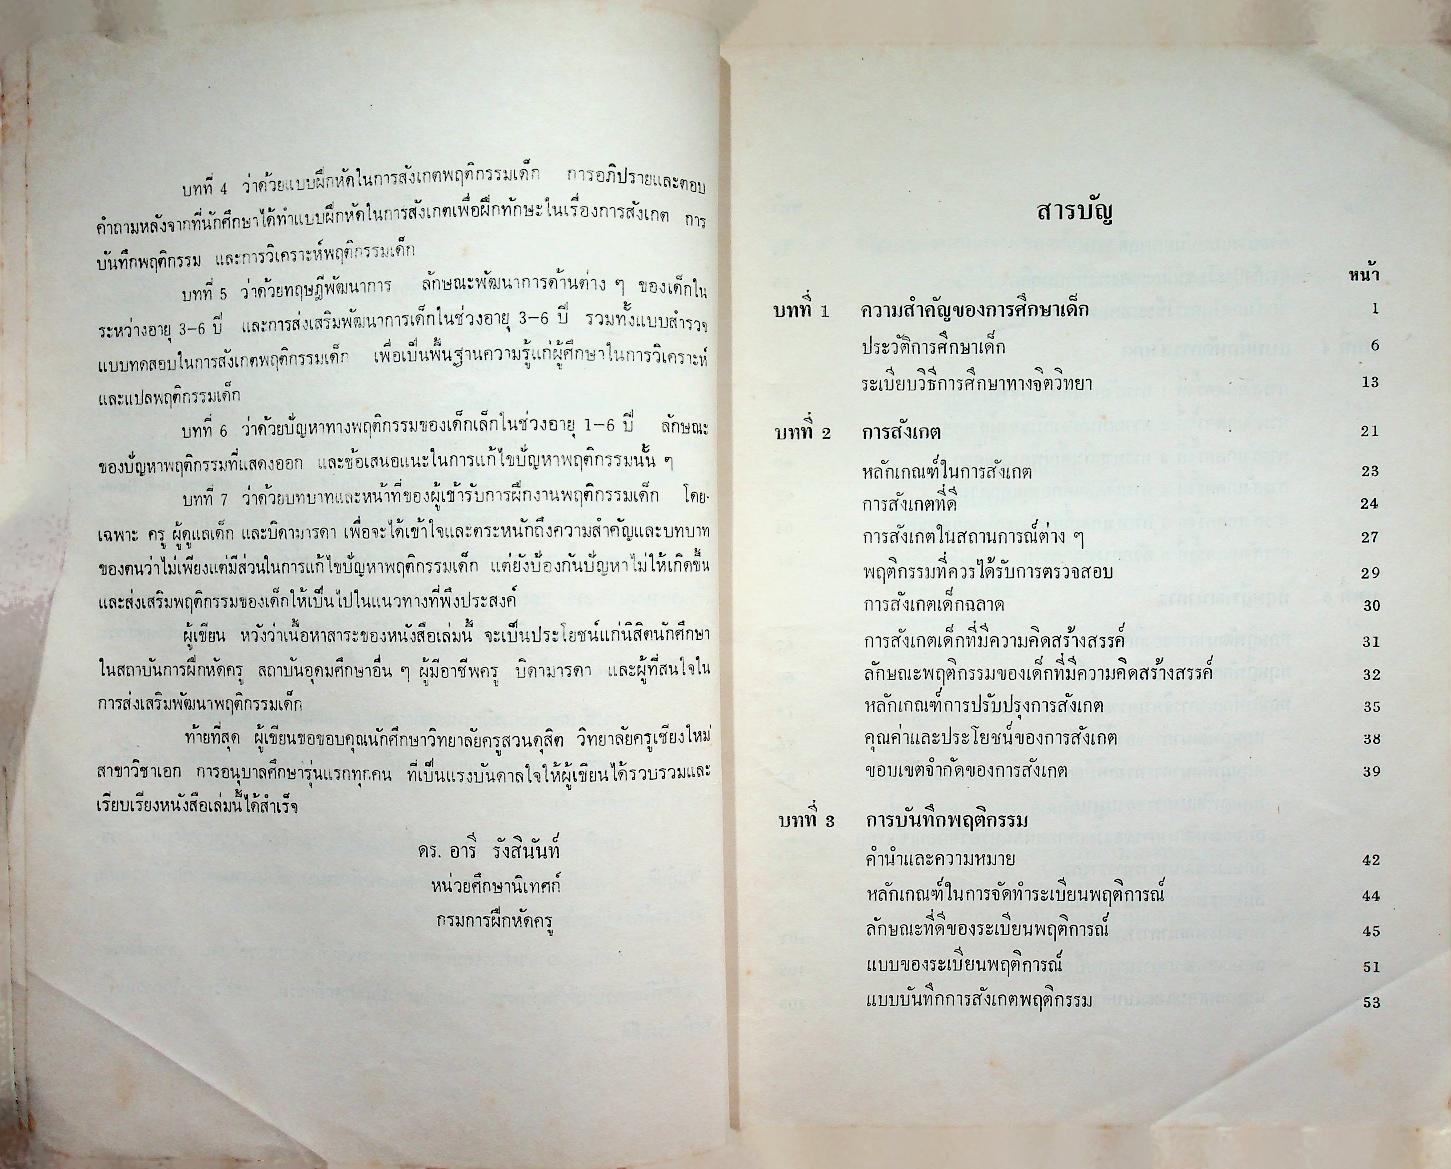 บทที่ 4 ว่าด้วยแบบฝึกหัดในการสังเกตพฤติกรรมเด็ก การอภิปรายและตอบ
คำถามหลังจากที่นักศึกษาได้ทำแบบฝึกหัดในการสังเกตเพื่อฝึกทักษะในเรื่องการสังเกต การ
บันทึกพฤติกรรม และการวิเคราะห์พฤติกรรมเด็ก
บทที่ 5 ว่าด้วยทฤษฎีพัฒนาการ ลักษณะพัฒนาการด้านต่าง ๆ ของเด็กใน
ระหว่างอายุ 3-6 ปี และการส่งเสริมพัฒนาการเด็กในช่วงอายุ 3-6 ปี รวมทั้งแบบสำรวจ
แบบทดสอบในการสังเกตพฤติกรรมเด็ก เพื่อเป็นพื้นฐานความรู้แก่ผู้ศึกษาในการวิเคราะห์
และแปลพฤติกรรมเด็ก
บทที่ 6 ว่าด้วยปัญหาทางพฤติกรรมของเด็กเล็กในช่วงอายุ 1-6 ปี ลักษณะ
ของปัญหาพฤติกรรมที่แสดงออก และข้อเสนอแนะในการแก้ไขปัญหาพฤติกรรมนั้น ๆ
บทที่ 7 ว่าด้วยบทบาทและหน้าที่ของผู้เข้ารับการฝึกงานพฤติกรรมเด็ก โดย-
เฉพาะ ครู ผู้ดูแลเด็ก และบิดามารดา เพื่อจะได้เข้าใจและตระหนักถึงความสำคัญและบทบาท
ของตนว่าไม่เพียงแต่มีส่วนในการแก้ไขปัญหาพฤติกรรมเด็ก แต่ยังป้องกันปัญหาไม่ให้เกิดขึ้น
และส่งเสริมพฤติกรรมของเด็กให้เป็นไปในแนวทางที่พึงประสงค์
ผู้เขียน หวังว่าเนื้อหาสาระของหนังสือเล่มนี้ จะเป็นประโยชน์แก่นิสิตนักศึกษา
ในสถาบันการฝึกหัดครู สถาบันอุดมศึกษาอื่น ๆ ผู้มีอาชีพครู บิดามารดา และผู้ที่สนใจใน
การส่งเสริมพัฒนาพฤติกรรมเด็ก
ท้ายที่สุด ผู้เขียนขอขอบคุณนักศึกษาวิทยาลัยครูสวนดุสิต วิทยาลัยครูเชียงใหม่
สาขาวิชาเอก การอนุบาลศึกษารุ่นแรกทุกคน ที่เป็นแรงบันดาลใจให้ผู้เขียนได้รวบรวมและ
เรียบเรียงหนังสือเล่มนี้ได้สำเร็จ
ดร. อารี รังสินันท์
หน่วยศึกษานิเทศก์
กรมการฝึกหัดครู
สารบัญ
หน้า
บทที่ 1 ความสำคัญของการศึกษาเด็ก 1
ประวัติการศึกษาเด็ก 6
ระเบียบวิธีการศึกษาทางจิตวิทยา 13
บทที่ 2 การสังเกต 21
หลักเกณฑ์ในการสังเกต 23
การสังเกตที่ดี 24
การสังเกตในสถานการณ์ต่าง ๆ 27
พฤติกรรมที่ควรได้รับการตรวจสอบ 29
การสังเกตเด็กฉลาด 30
การสังเกตเด็กที่มีความคิดสร้างสรรค์ 31
ลักษณะพฤติกรรมของเด็กที่มีความคิดสร้างสรรค์ 32
หลักเกณฑ์การปรับปรุงการสังเกต 35
คุณค่าและประโยชน์ของการสังเกต 38
ขอบเขตจำกัดของการสังเกต 39
บทที่ 3 การบันทึกพฤติกรรม
คำนำและความหมาย 42
หลักเกณฑ์ในการจัดทำระเบียนพฤติการณ์ 44
ลักษณะที่ดีของระเบียนพฤติการณ์ 45
แบบของระเบียนพฤติการณ์ 51
แบบบันทึกการสังเกตพฤติกรรม 53